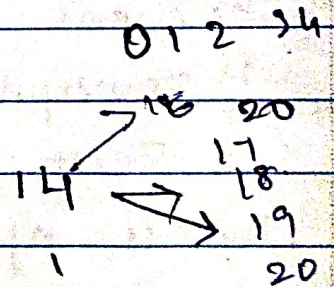 0 1 2 34
16 20
17
14 18
19
1 20